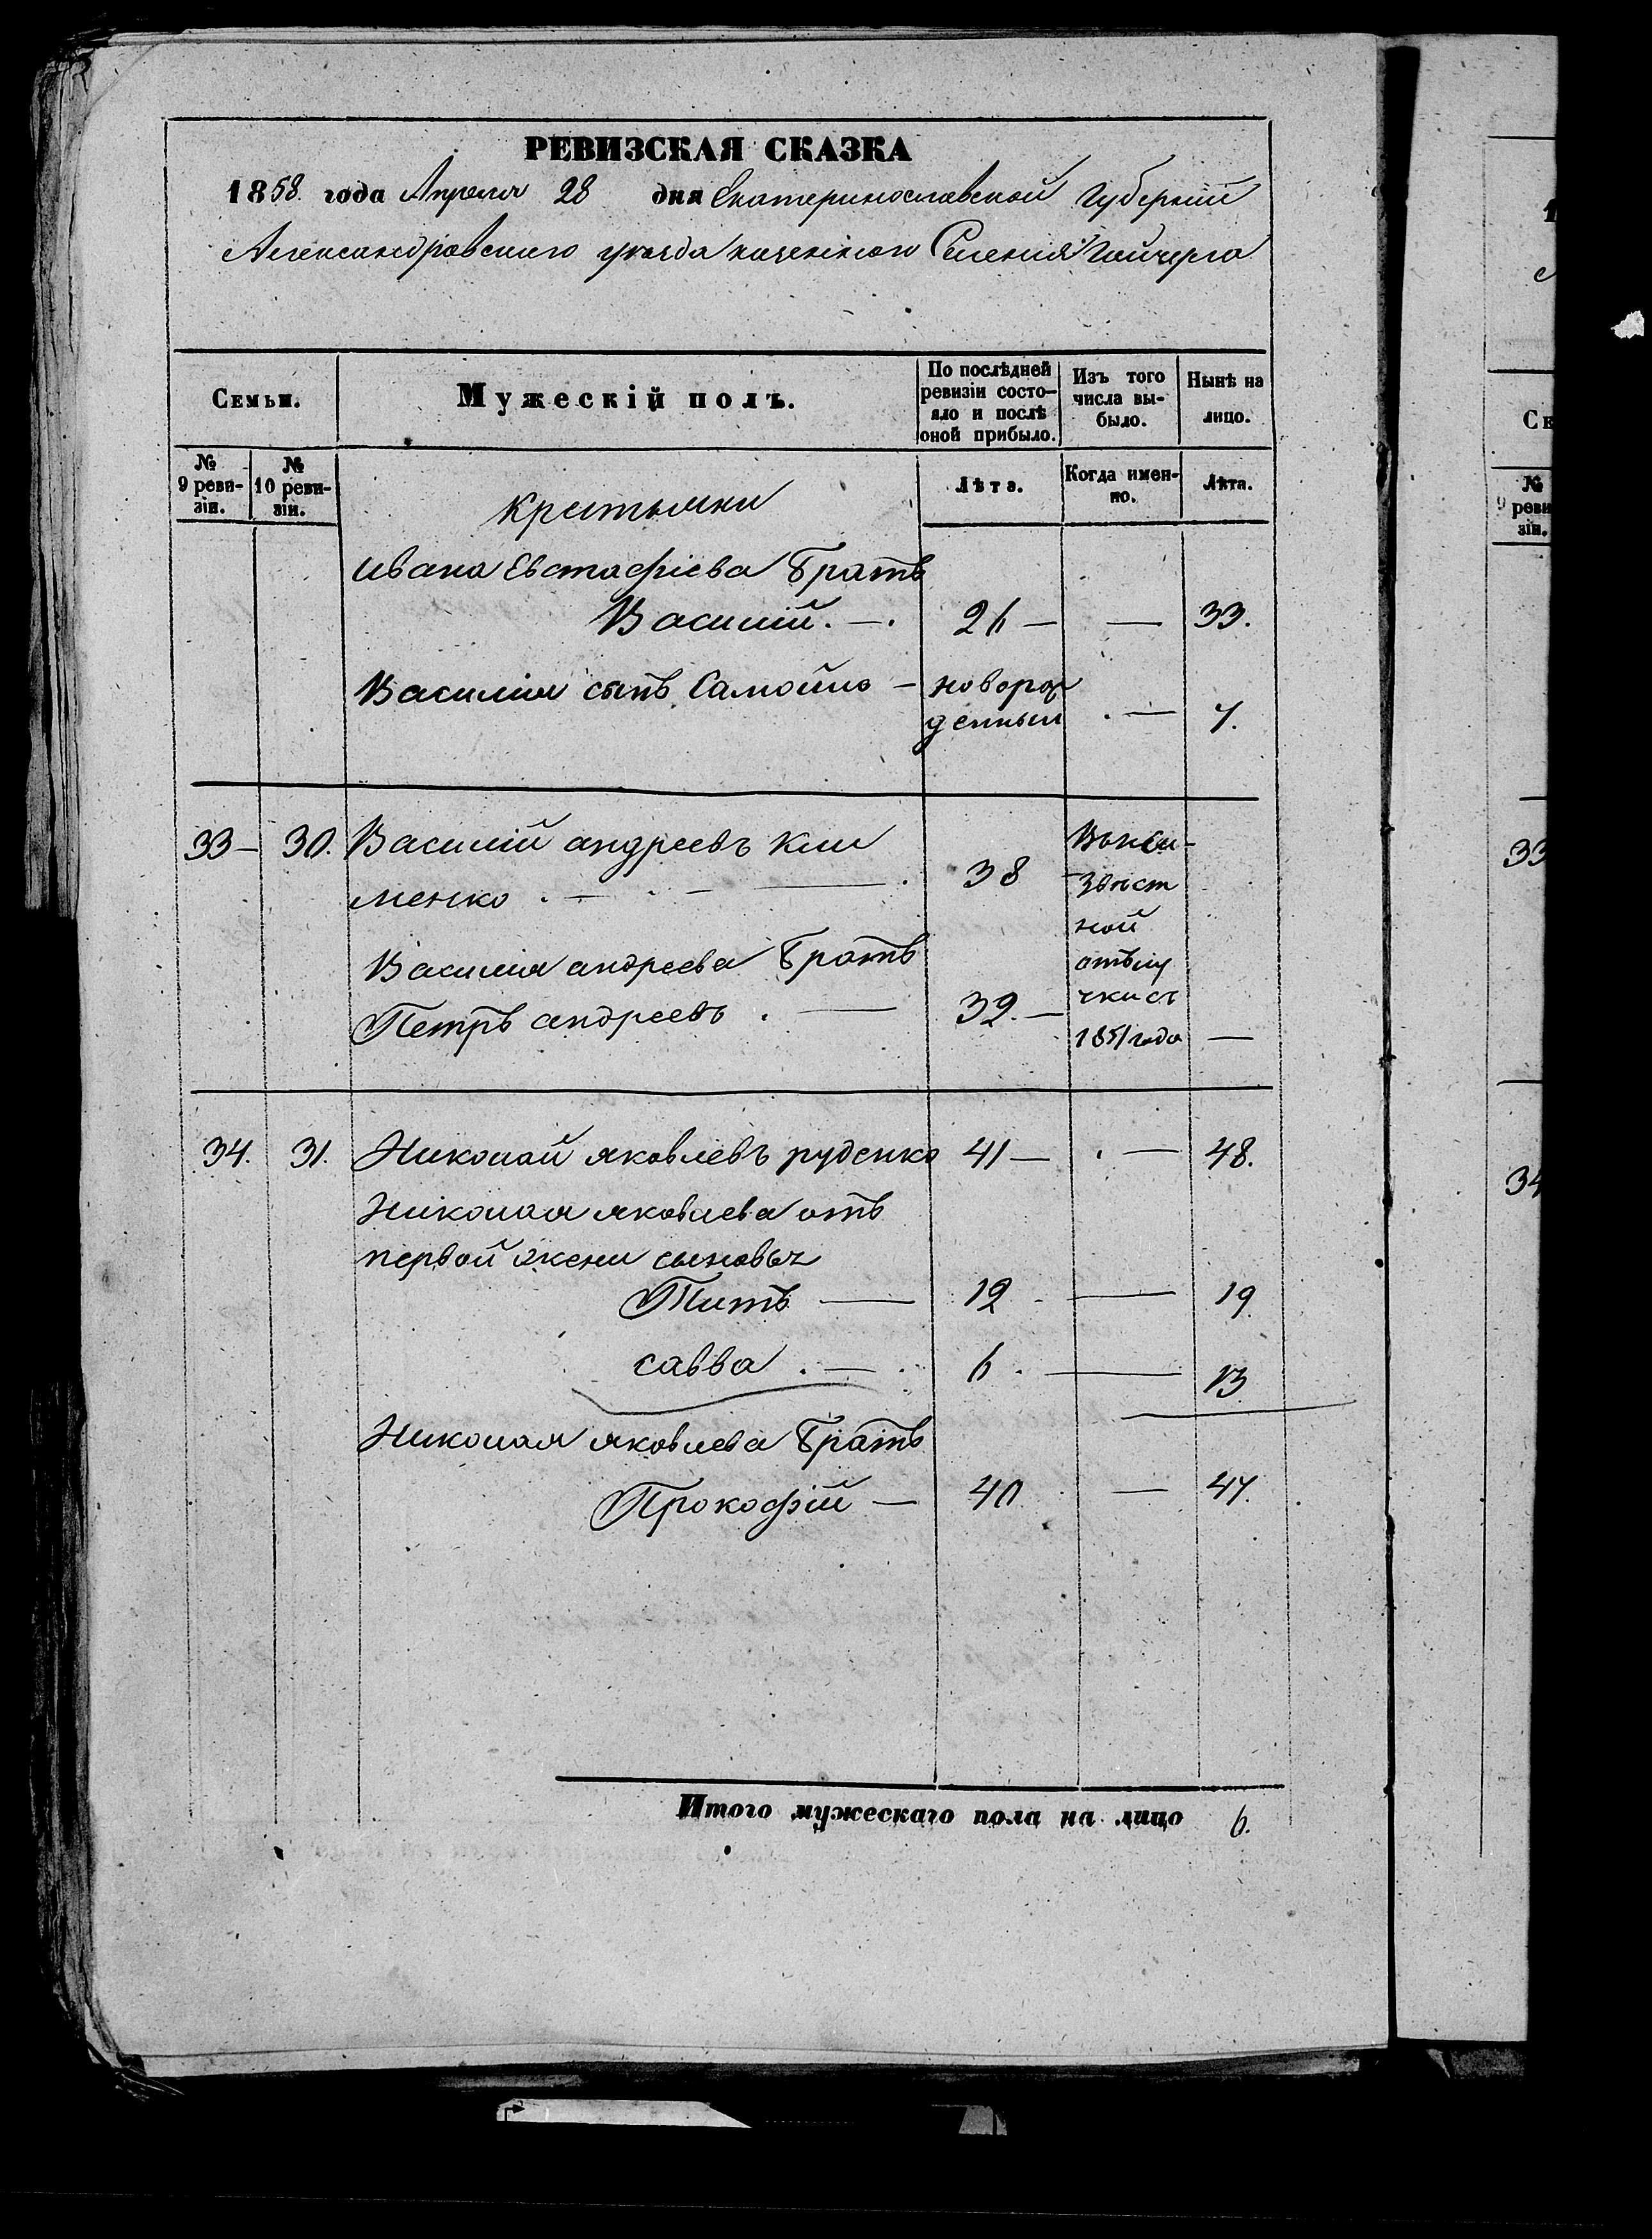 РЕВИЗСКАЯ СКАЗКА
1858 года Апреля 28 дня Екатеринославской Губерніи
Александровского уезда казенного Селения Гайчура
Семьи.
Мужескій полъ.
По послѣдней ревизіи состояло и послѣ оной прибыло.
Изъ того числа выбыло.
Нынѣ на лицо.
№ 9 ревизіи.
№ 10 ревизіи.
крестьяни
Лѣта.
Когда именно.
Лѣта.
Ивана Евстафіева Братъ
Василій. — 26 — — 33.
Василія сынъ Самойло — новорож
денный . — 7.
33 — 30. Василій андреевъ Кли
менко . — 38
Василія андреева Братъ
Петръ андреевъ . — 32. —
Въ неи-
звѣст
ной
отълу
чки съ
1851 года —
34. 31. Николай яковлевъ руденко 41 — . — 48.
Николая яковлева отъ
первой жени сыновья
Титъ — 12 — 19
савва . — . 6 . — 13
Николая яковлева Братъ
Прокофій — 40 — 47.
Итого мужескаго пола на лицо 6.
1
Се
№ 9 ревизіи.
33
34